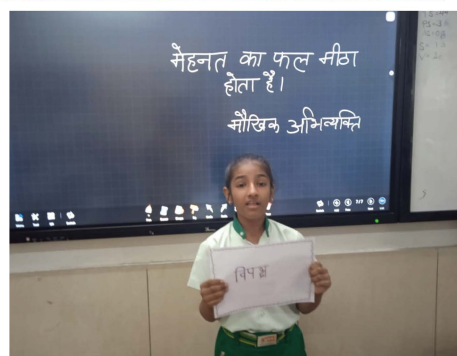 मेहनत का फल मीठा
होता है।
मौखिक अभिव्यक्ति
विपक्ष